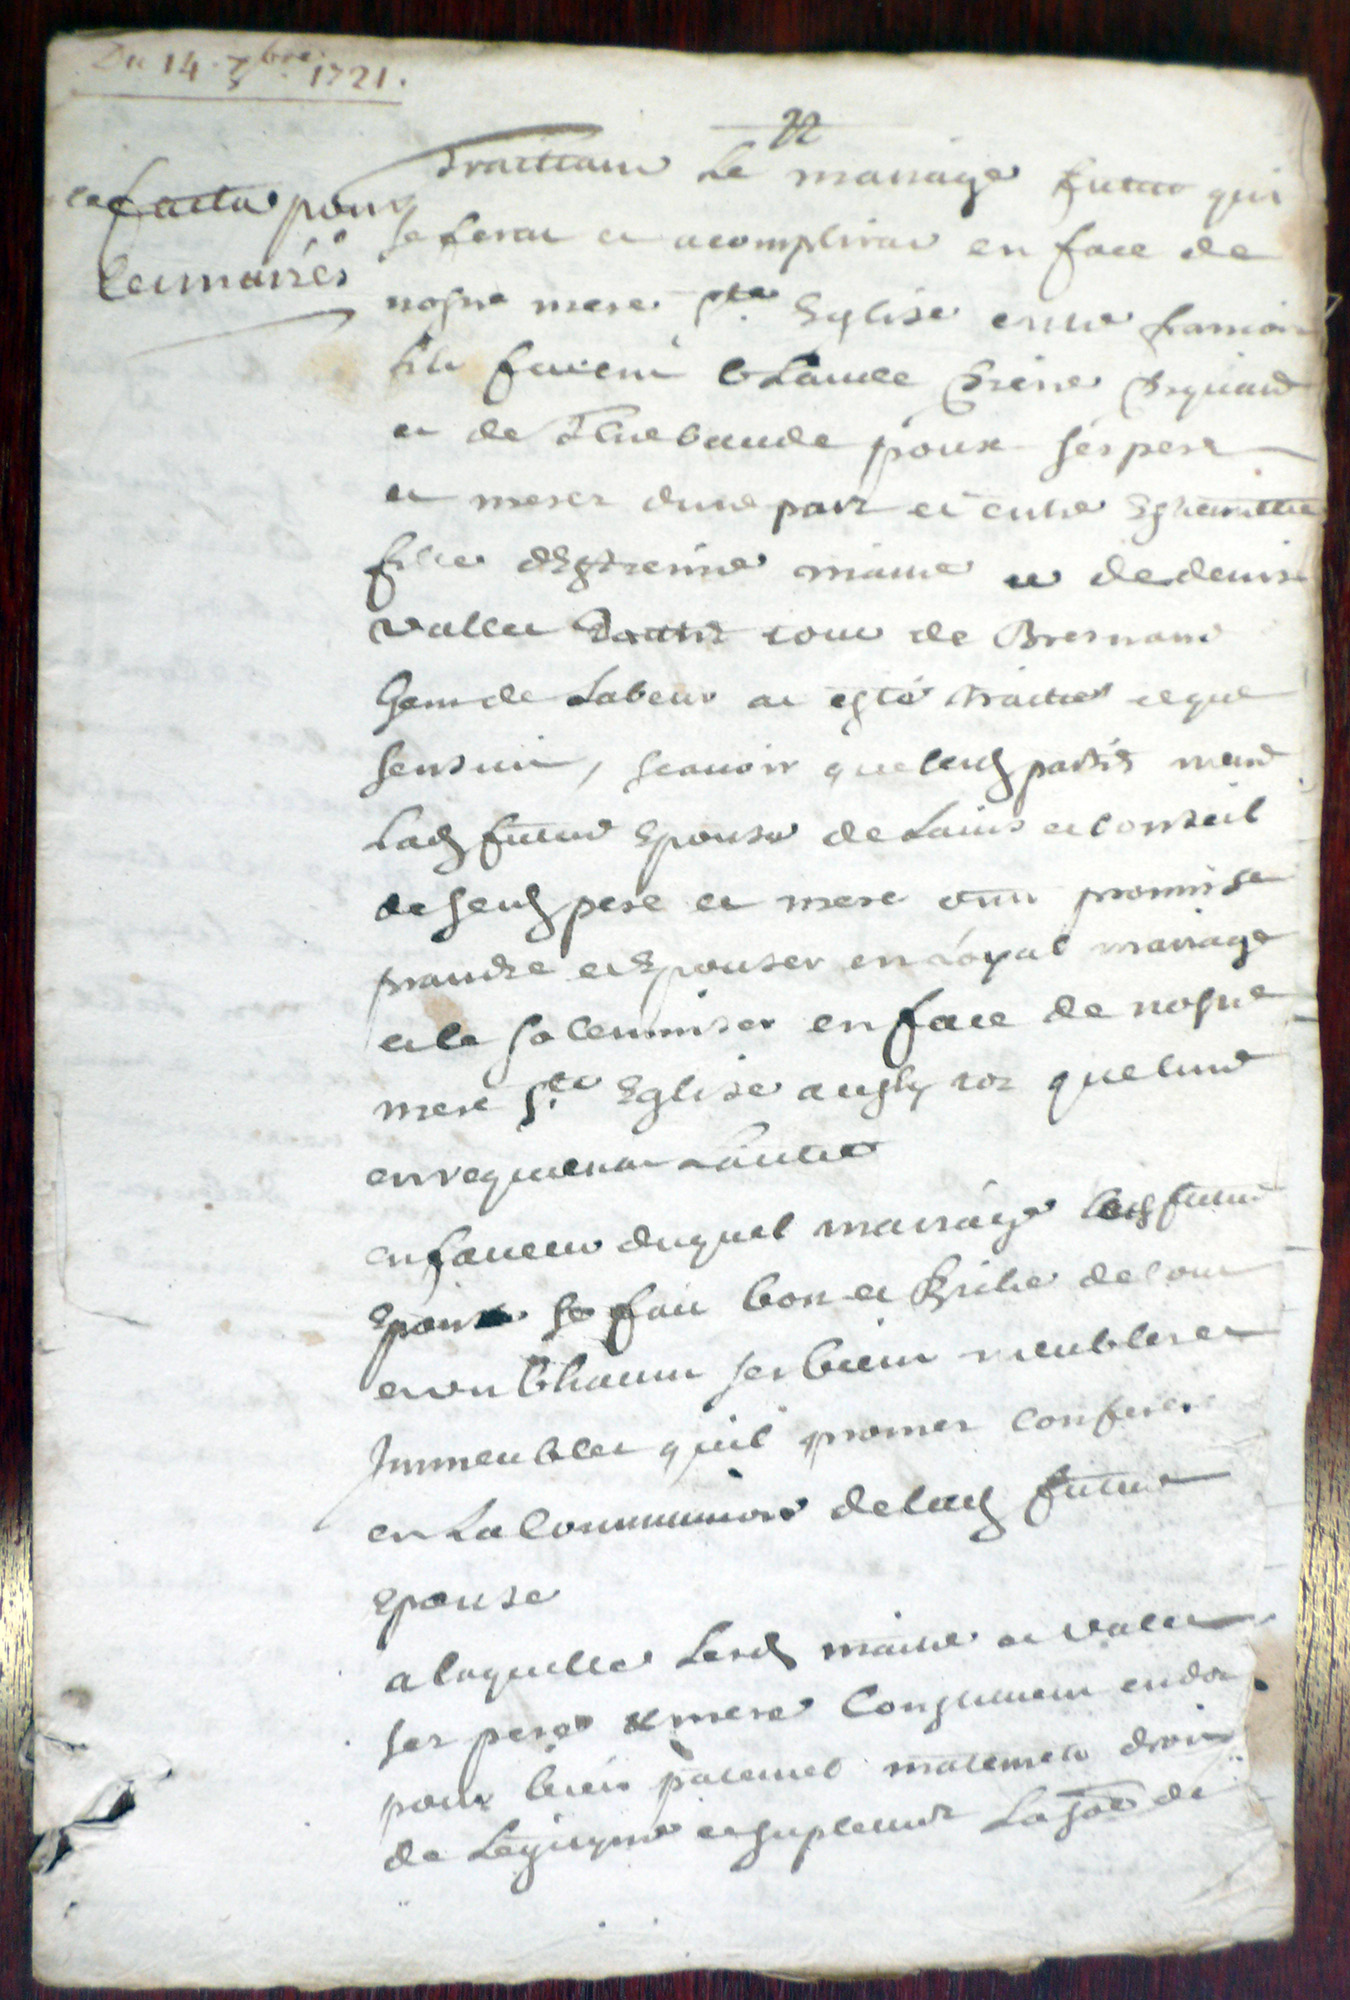 Du 14 7bre 1721.
22
faitte pour
les mariés
Traittant le mariage futur qui
se ferat et acomplirat en face de
nostre mere Ste Eglise entre francois
fils feu et Claude Pierre Piguard
et de Thiebaude poux ses pere
et merer dune part et entre Estiennette
fille dEstienne maitre et de denise
vallet tous de Bresnans
Gens de Labeur at esté traitté ce que
sensuit, scauoir que lesd partis mesme
Lad futur Epouse de Lauis et conseil
de sesd pere et mere ont promis se
prandre et Epouser en Loyal mariage
et le solemniser en face de nostre
mere Ste Eglise aussy tot que lune
en requerrat Lautre
en faueur duquel mariage led futur
Epoux se fait bon et Riche de tous
et un Chacun ses biens meubles et
Immeubles quil promet conferer
en La Communion de lad future
Epouse
a laquelle Lesd maitre et vallet
ses pere et mere Constituent en dot
pour biens paternel maternelz droit
de Legityme et suplement La some de